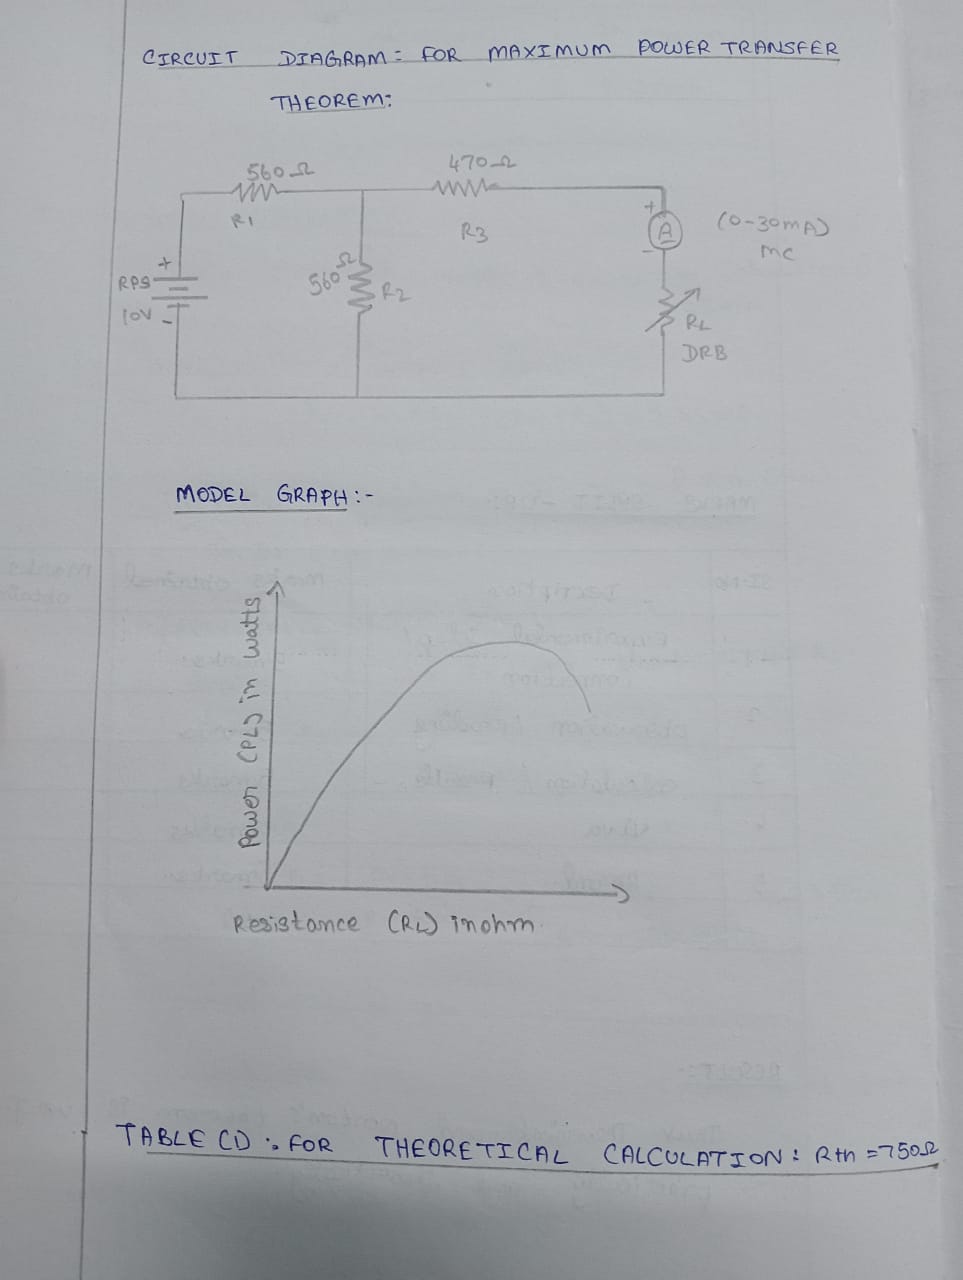 CIRCUIT DIAGRAM: FOR MAXIMUM POWER TRANSFER
THEOREM:
560Ω
470Ω
R1
R3
+
A
-
(0-30mA)
mc
+
RPS
10V -
560Ω
R2
RL
DRB
MODEL GRAPH:-
Power (PL) in watts
Resistance (RL) in ohm.
TABLE (1): FOR THEORETICAL CALCULATION: Rth =750Ω